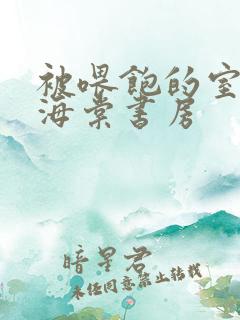 被喂饱的室
海棠书房
暗星君
未经同意禁止转载